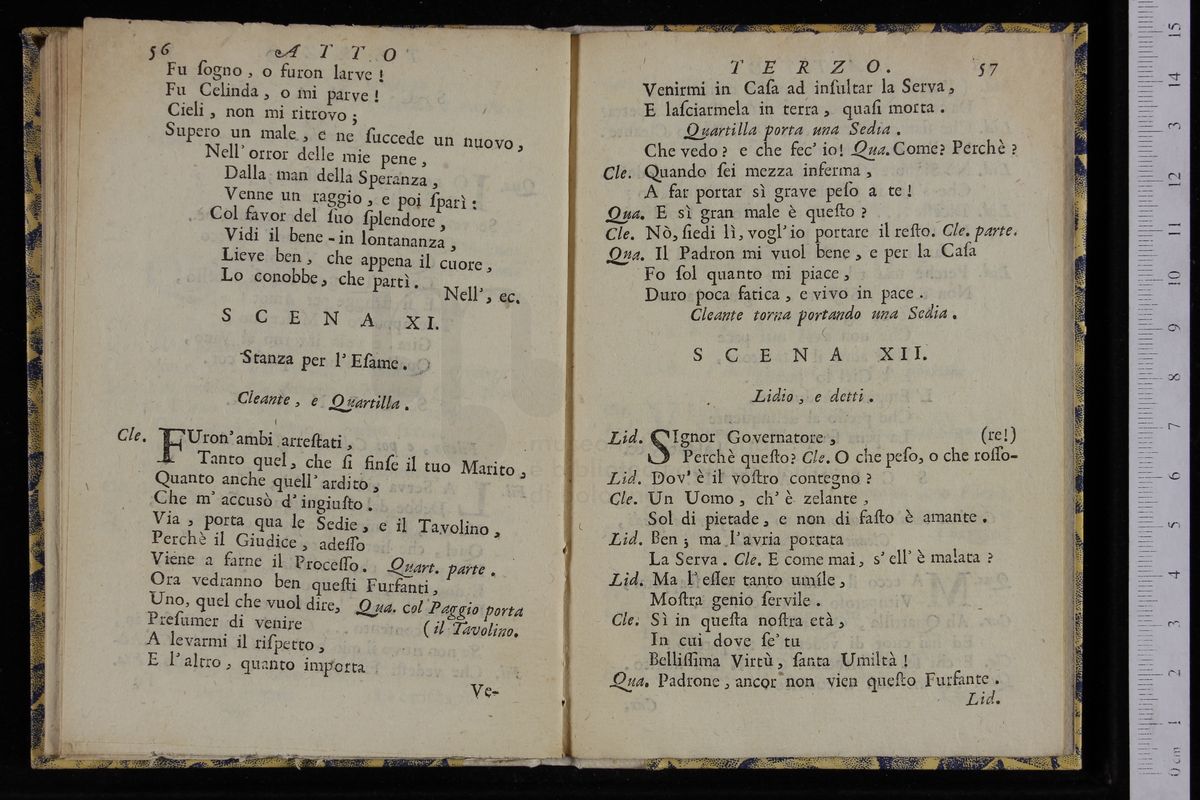 56 ATTO
Fu ſogno, o furon larve!
Fu Celinda, o mi parve!
Cieli, non mi ritrovo;
Supero un male, e ne ſuccede un nuovo,
Nell' orror delle mie pene,
Dalla man della Speranza,
Venne un raggio, e poi ſparì:
Col favor del ſuo ſplendore,
Vidi il bene-in lontananza,
Lieve ben, che appena il cuore,
Lo conobbe, che partì.
Nell', ec.
SCENA XI.
Stanza per l'Eſame.
Cleante, e Quartilla.
Cle. FUron' ambi arreſtati,
Tanto quel, che ſi finſe il tuo Marito,
Quanto anche quell' ardito,
Che m' accusò d' ingiuſto.
Via, porta qua le Sedie, e il Tavolino,
Perchè il Giudice, adeſſo
Viene a farne il Proceſſo. Quart. parte.
Ora vedranno ben queſti Furfanti,
Uno, quel che vuol dire, Qua. col Paggio porta
Preſumer di venire (il Tavolino.
A levarmi il riſpetto,
E l'altro, quanto importa
Ve-
TERZO. 57
Venirmi in Caſa ad inſultar la Serva,
E laſciarmela in terra, quaſi morta.
Quartilla porta una Sedia.
Che vedo? e che fec' io! Qua. Come? Perchè?
Cle. Quando ſei mezza inferma,
A far portar sì grave peſo a te!
Qua. E sì gran male è queſto?
Cle. Nò, ſiedi lì, vogl' io portare il reſto. Cle. parte.
Qua. Il Padron mi vuol bene, e per la Caſa
Fo ſol quanto mi piace,
Duro poca fatica, e vivo in pace.
Cleante torna portando una Sedia.
SCENA XII.
Lidio, e detti.
Lid. SIgnor Governatore, (re!)
Perchè queſto? Cle. O che peſo, o che roſſo-
Lid. Dov' è il voſtro contegno?
Cle. Un Uomo, ch' è zelante,
Sol di pietade, e non di faſto è amante.
Lid. Ben; ma l'avria portata
La Serva. Cle. E come mai, s' ell' è malata?
Lid. Ma l' eſſer tanto umíle,
Moſtra genio ſervile.
Cle. Sì in queſta noſtra età,
In cui dove ſe' tu
Belliſſima Virtù, ſanta Umiltà!
Qua. Padrone, ancor non vien queſto Furfante.
Lid.